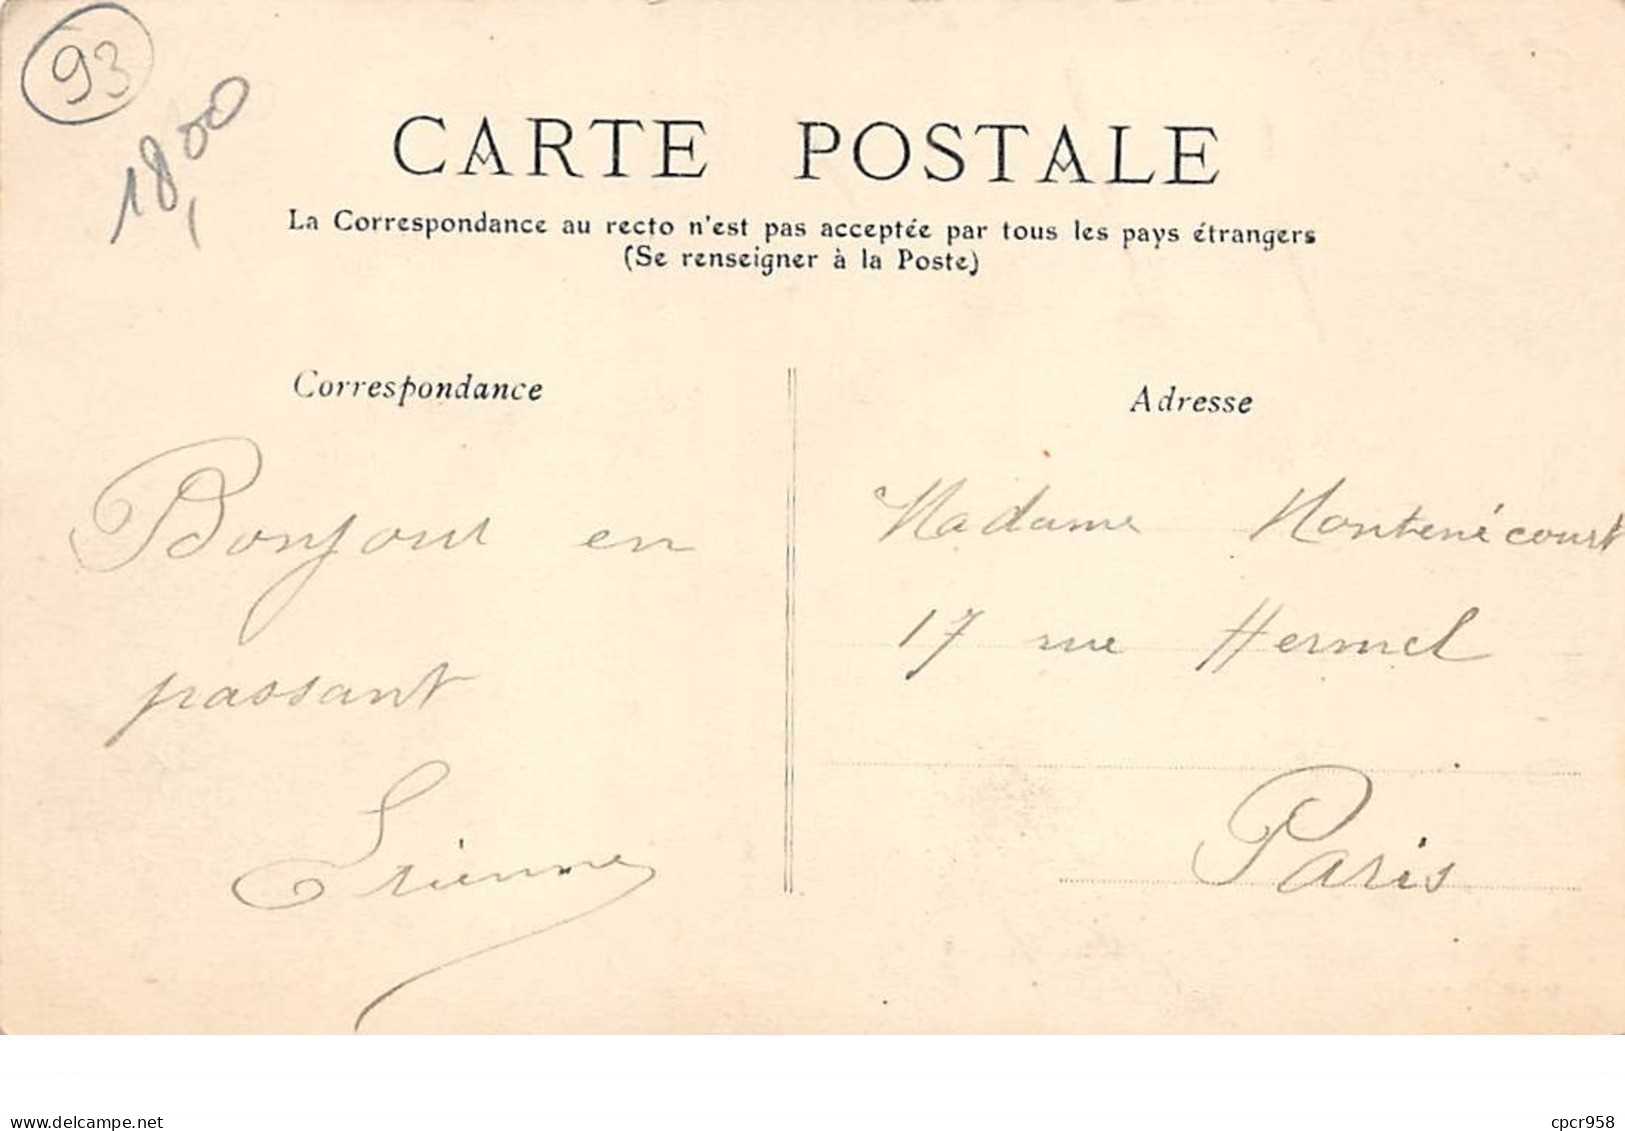 93
18,00
CARTE POSTALE
La Correspondance au recto n'est pas acceptée par tous les pays étrangers
(Se renseigner à la Poste)
Correspondance
Bonjour en
passant
Etienne
Adresse
Madame Montenécourt
17 rue Hermel
Paris
delcampe.net
cpcr958